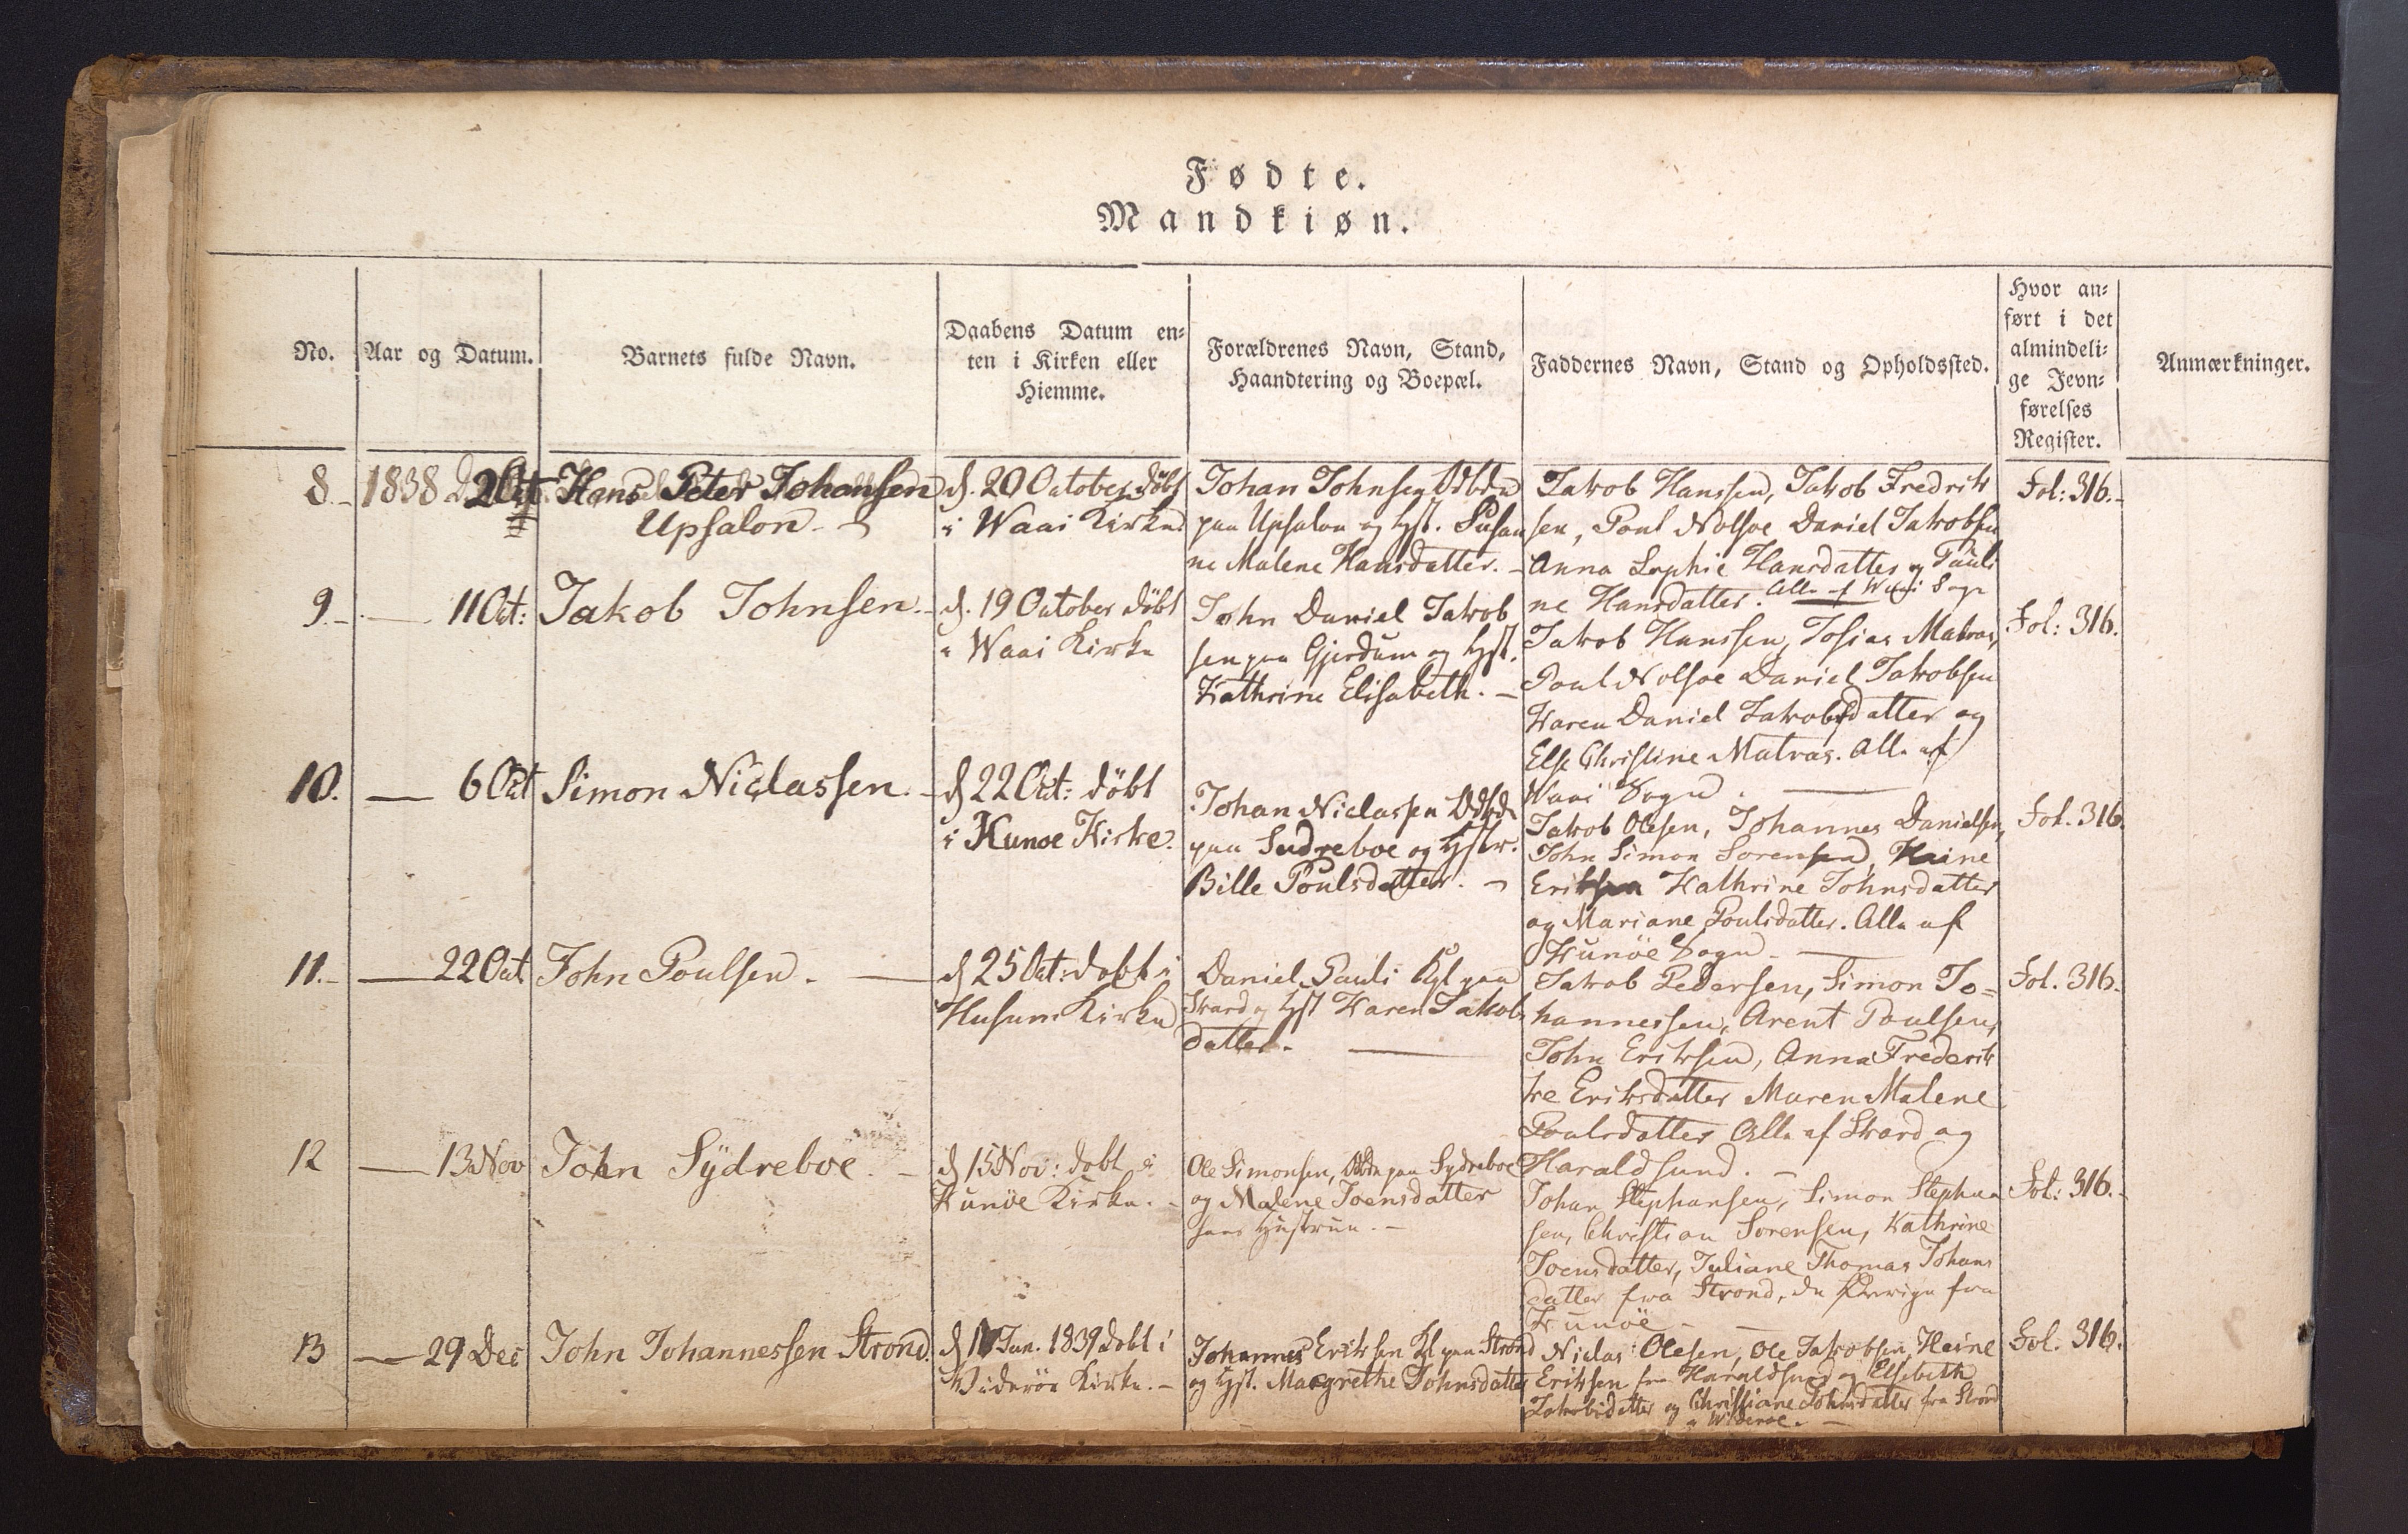 Fødte.
Mandkiøn.
No.
Aar og Datum.
Barnets fulde Navn.
Daabens Datum en-
ten i Kirken eller
Hiemme.
Forældrenes Navn, Stand,
Haandtering og Boepæl.
Faddernes Navn, Stand og Opholdssted.
Hvor an-
ført i det
almindeli-
ge Jevn-
førelses
Register.
Anmærkninger.
8.
1838
2 Oct
Hans Peter Johansen
Upsalon
d. 20 October döbt
i Waai Kirke
Johan Johnsen
paa Upsalon og Hst. Susan
ne Malene Hansdatter.
Jakob Hanssen, Jakob Fredrik
sen, Poul Nolsoe Daniel Jakobsen
Anna Sophie Hansdatter og Pauli
ne Hansdatter. Alle af Waai Sogn
Fol: 316.
9.
11 Oct:
Jakob Johnsen.
d. 19 October döbt
i Waai Kirke
John Daniel Jakob
sen paa Gjerdum og Hst.
Kathrine Elisabeth.
Jakob Hanssen, Josias Matras,
Poul Nolsoe Daniel Jakobsen
Karen Daniel Jakobsdatter og
Else Christine Matras. Alle af
Waai Sogn.
Fol: 316.
10.
6 Oct
Simon Niclassen.
d 22 Oct: döbt
i Kunoe Kirke.
Johan Niclassen
paa Sudreboe og Hstr.
Bille Poulsdatter.
Jakob Olesen, Johannes Danielsen,
John Simon Sorensen, Heine
Eriksen Kathrine Johnsdatter
og Mariane Poulsdatter. Alle af
Kunöe Sogn
Fol. 316.
11.
22 Oct
John Poulsen.
d 25 Oct: dobt i
Husum Kirke
Daniel Pauli paa
Skard og Hst Karen Jakobs
datter.
Jakob Pedersen, Simon Jo=
hannessen, Arent Poulsen,
John Eriksen, Anna Frederik
ke Eriksdatter Maren Malene
Poulsdatter Alle af Skard og
Haraldsund.
Fol. 316.
12
13 Nov
John Sÿdreboe.
d 15 Nov: dobt i
Kunöe Kirke.
Ole Simonsen, paa Sydreboe
og Malene Joensdatter
hans Hustrue.
Johan Stephansen, Simon Stephan
sen, Christian Sorensen, Kathrine
Joensdatter, Juliane Thomas Johans
datter fra Strond, de øvrige fra
Kunöe
Fol: 316.
13
29 Dec
John Johannessen Strond.
d 1 Jan. 1839 dobt i
Viderøe Kirke.
Johannes Eriksen paa Strond
og Hst. Margrethe Johnsdatter
Niclas Olesen, Ole Jakobsen, Heine
Eriksen fra Haraldsund og Elsebeth
Jakobsdatter og Christiane Johnsdatter fra Strond
Fol. 316.